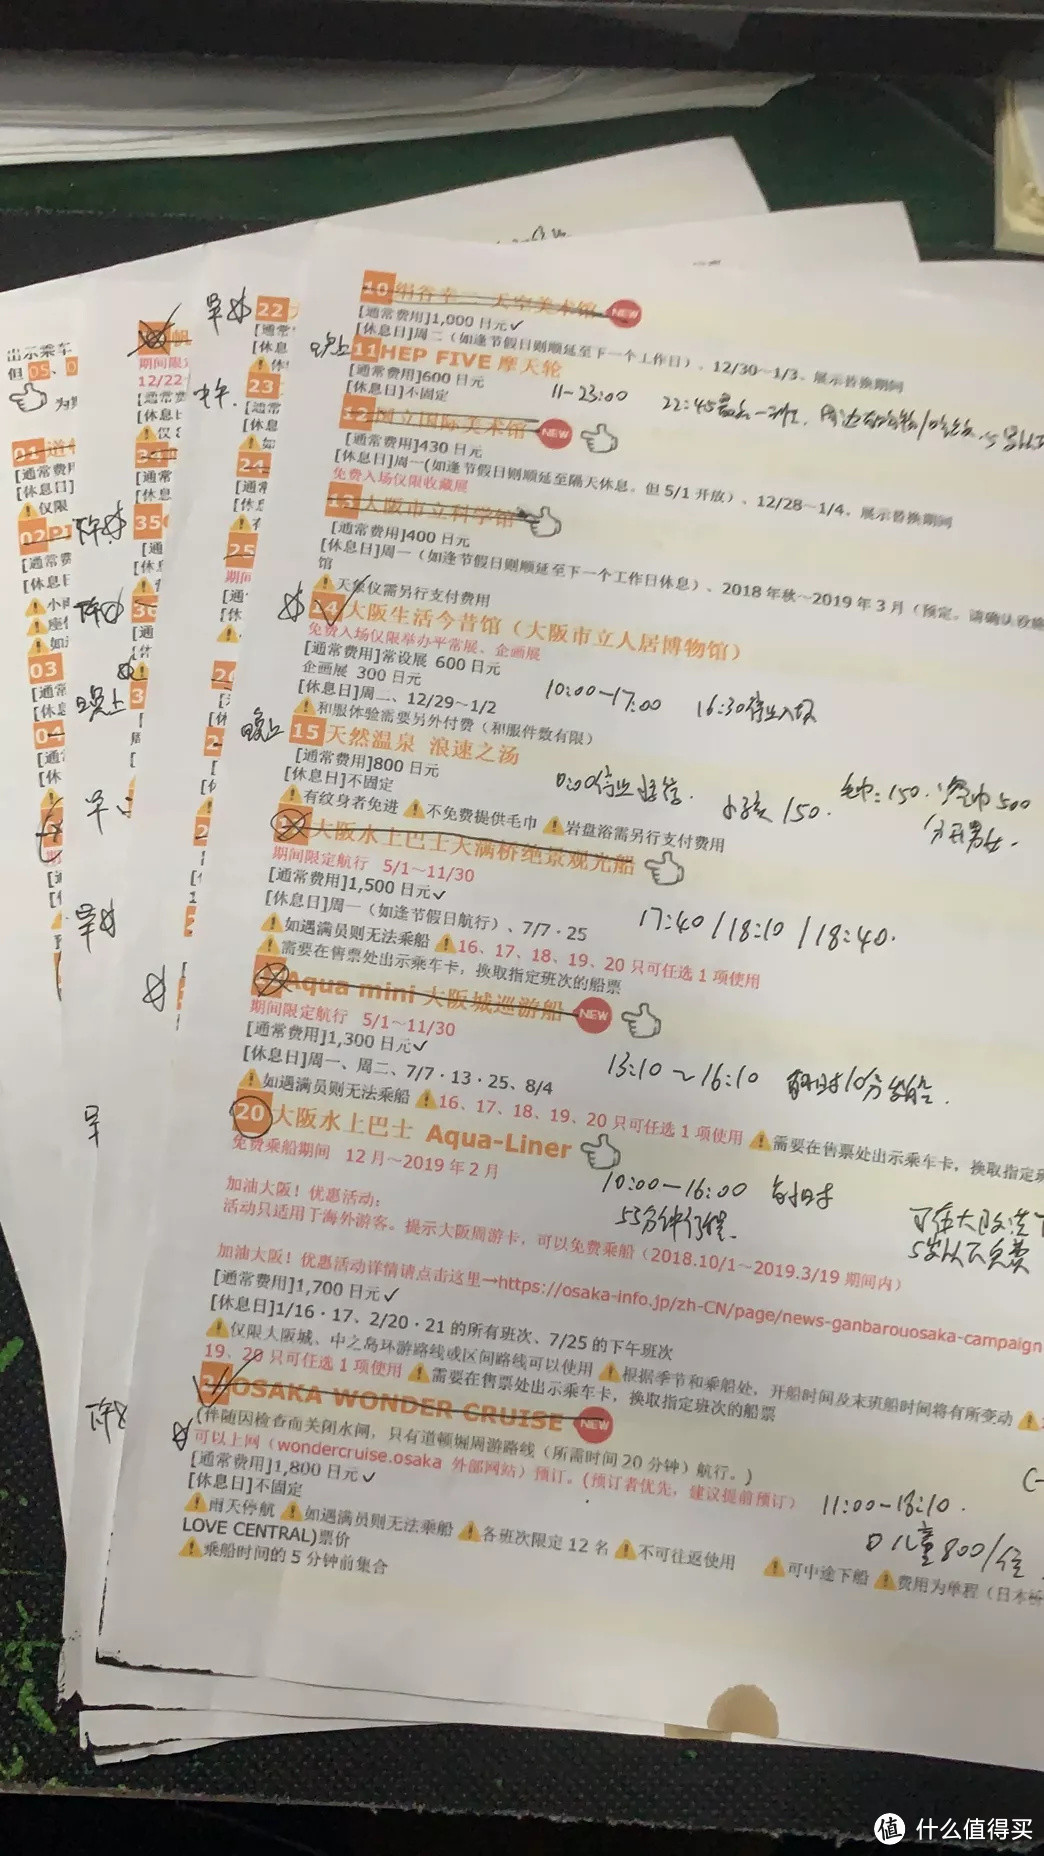 10 绢谷幸二 天空美术馆 NEW
[通常费用]1,000 日元✓
[休息日]周二（如逢节假日则顺延至下一个工作日）、12/30～1/3、展示替换期间
晚上 11 HEP FIVE 摩天轮
[通常费用]600 日元
[休息日]不固定
11-23:00 22:45最后一班
12 国立国际美术馆 NEW
[通常费用]430 日元
[休息日]周一(如逢节假日则顺延至隔天休息。但 5/1 开放）、12/28～1/4、展示替换期间
免费入场仅限收藏展
13 大阪市立科学馆
[通常费用]400 日元
[休息日]周一（如逢节假日则顺延至下一个工作日休息）、2018 年秋～2019 年 3 月（预定。请确认设施
馆
天象仪需另行支付费用
14 大阪生活今昔馆（大阪市立人居博物馆）
免费入场仅限举办平常展、企画展
[通常费用]常设展 600 日元
企画展 300 日元
[休息日]周二、12/29～1/2
和服体验需要另外付费（和服件数有限）
10:00-17:00 16:30停止入场
晚上 15 天然温泉 浪速之汤
[通常费用]800 日元
[休息日]不固定
有纹身者免进 不免费提供毛巾 岩盘浴需另行支付费用
0:00停止接待. 小孩 150. 毛巾:150. 浴巾500
分开男女.
大阪水上巴士天满桥绝景观光船
期间限定航行 5/1～11/30
[通常费用]1,500 日元✓
[休息日]周一（如逢节假日航行）、7/7・25
17:40 / 18:10 / 18:40.
如遇满员则无法乘船 16、17、18、19、20 只可任选 1 项使用
需要在售票处出示乘车卡，换取指定班次的船票
Aqua mini 大阪城巡游船 NEW
期间限定航行 5/1～11/30
[通常费用]1,300 日元✓
[休息日]周一、周二、7/7・13・25、8/4
13:10～16:10 每小时10分发船.
如遇满员则无法乘船 16、17、18、19、20 只可任选 1 项使用 需要在售票处出示乘车卡，换取指定班
20 大阪水上巴士 Aqua-Liner
免费乘船期间 12 月～2019 年 2 月
10:00-16:00 每小时
55分钟行程.
5岁以下免费
加油大阪！优惠活动：
活动只适用于海外游客。提示大阪周游卡，可以免费乘船（2018.10/1～2019.3/19 期间内）
加油大阪！优惠活动详情请点击这里→https://osaka-info.jp/zh-CN/page/news-ganbarouosaka-campaign
[通常费用]1,700 日元✓
[休息日]1/16・17、2/20・21 的所有班次、7/25 的下午班次
仅限大阪城、中之岛环游路线或区间路线可以使用 根据季节和乘船处，开船时间及末班船时间将有所变动
19、20 只可任选 1 项使用 需要在售票处出示乘车卡，换取指定班次的船票
OSAKA WONDER CRUISE NEW
(伴随因检查而关闭水闸，只有道顿堀周游路线（所需时间 20 分钟）航行。)
可以上网（wondercruise.osaka 外部网站）预订。(预订者优先，建议提前预订）
[通常费用]1,800 日元✓
[休息日]不固定
11:00-18:10.
儿童800/位
雨天停航 如遇满员则无法乘船 各班次限定 12 名 不可往返使用 可中途下船 费用为单程（日本桥
LOVE CENTRAL)票价
乘船时间的 5 分钟前集合
出示乘车
但 05、0
01 道
[通常费用
[休息日]
仅限
02 PI
[通常费
[休息日
03
[通常
[休息
04
期间限
12/22
35
22
23
24
25
中午.
晚上
早
值 什么值得买